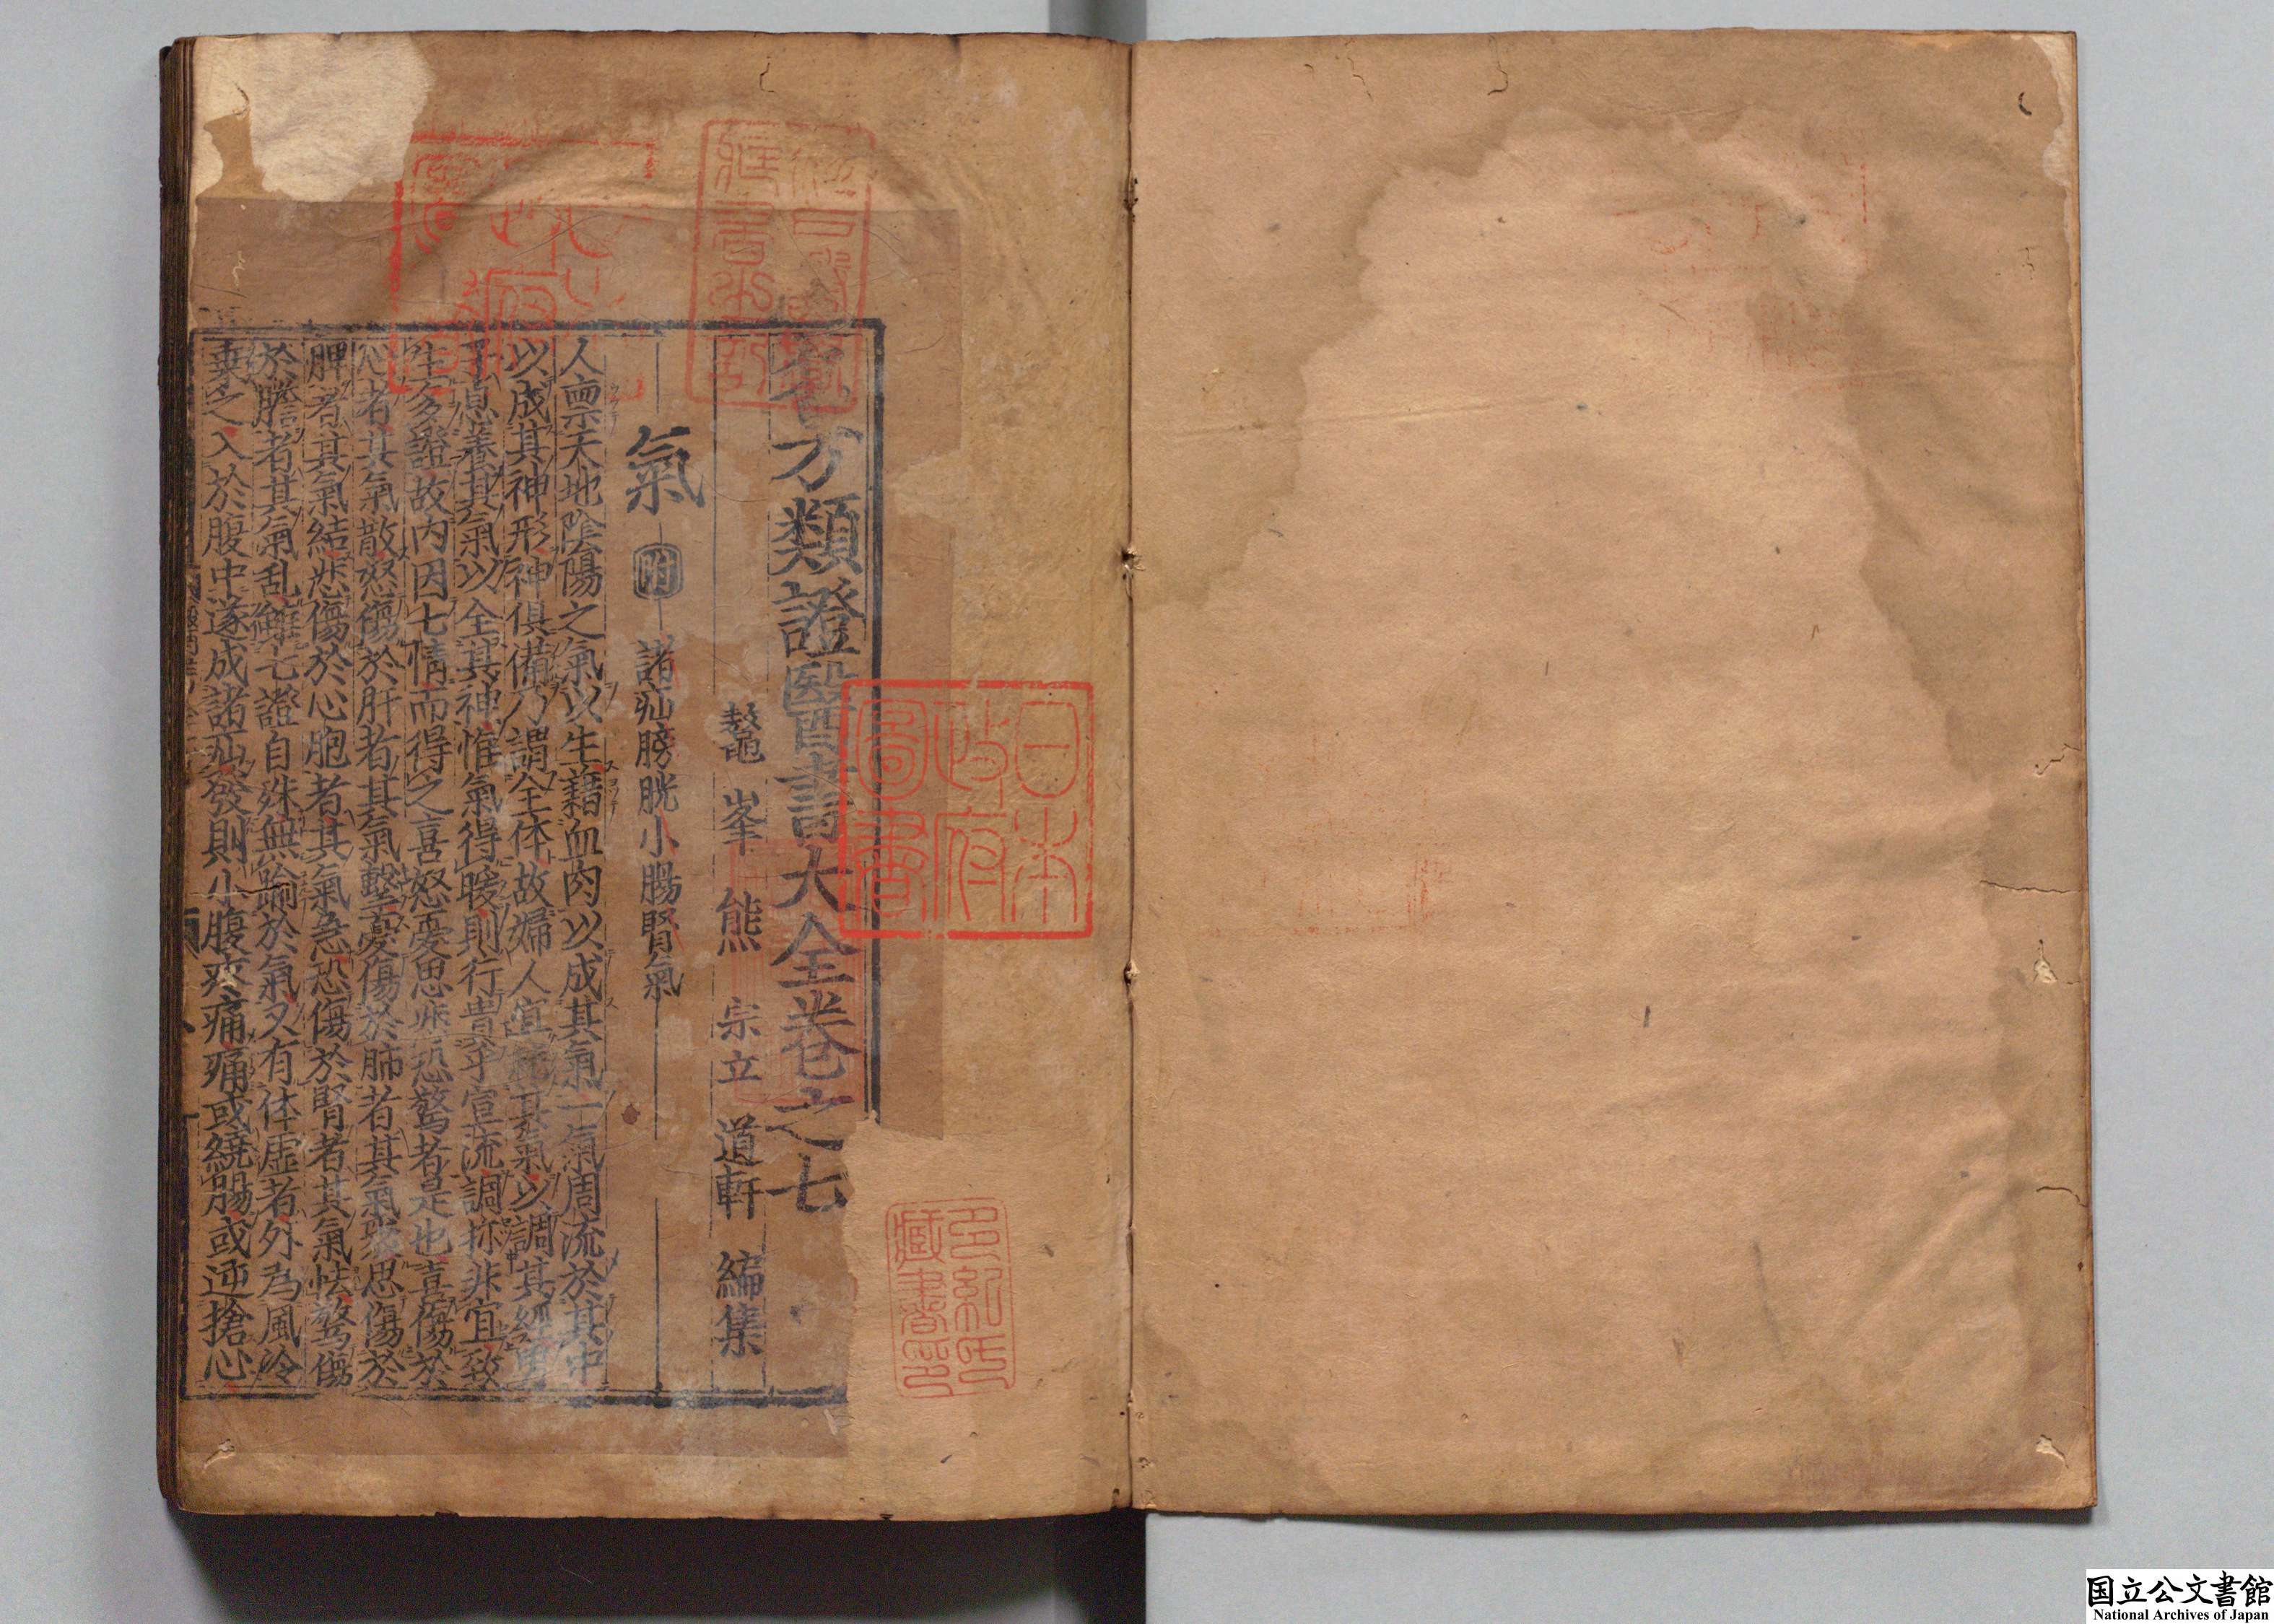 名方類證醫書大全卷之七
鼇峯 熊 宗立 道軒 編集
氣 附 諸疝膀胱小腸腎氣
人稟天地陰陽之氣以生藉血肉以成其氣一氣周流於其中
以成其神形神俱備乃謂全体故婦人宜其氣以調其經男
子息養其氣以全其神惟氣得暖則行貴乎宣流調非宜致
生多證故内因七情而得之喜怒憂思悲恐驚者是也喜傷於
心者其氣散怒傷於肝者其氣擊憂傷於肺者其氣聚思傷於
脾者其氣結悲傷於心胞者其氣急恐傷於腎者其氣怯驚傷
於膽者其氣乱雖七證自殊無踰於氣又有体虛者外為風冷
乗之入於腹中遂成諸疝發則小腹疼痛痛或繞腸或逆搶心
日本
政府
圖書
藏書
国立公文書館
National Archives of Japan